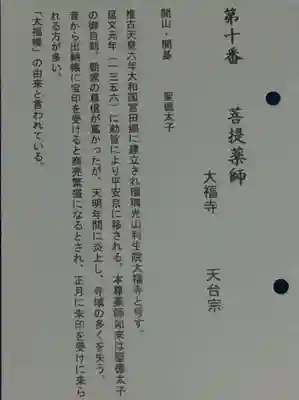 第十番　菩提薬師
大福寺　天台宗
開山・開基　聖徳太子
推古天皇六年大和国宮田郷に建立され瑠璃光山利生院大福寺と号す。
延文元年（一三五六）に勅旨により平安京に移される。本尊薬師如来は聖徳太子
の御自刻。朝家の尊信が篤かったが、天明年間に炎上し、寺領の多くを失う。
昔から出納帳に宝印を受けると商売繁盛になるとされ、正月に朱印を受けに来ら
れる方が多い。
「大福帳」の由来と言われている。